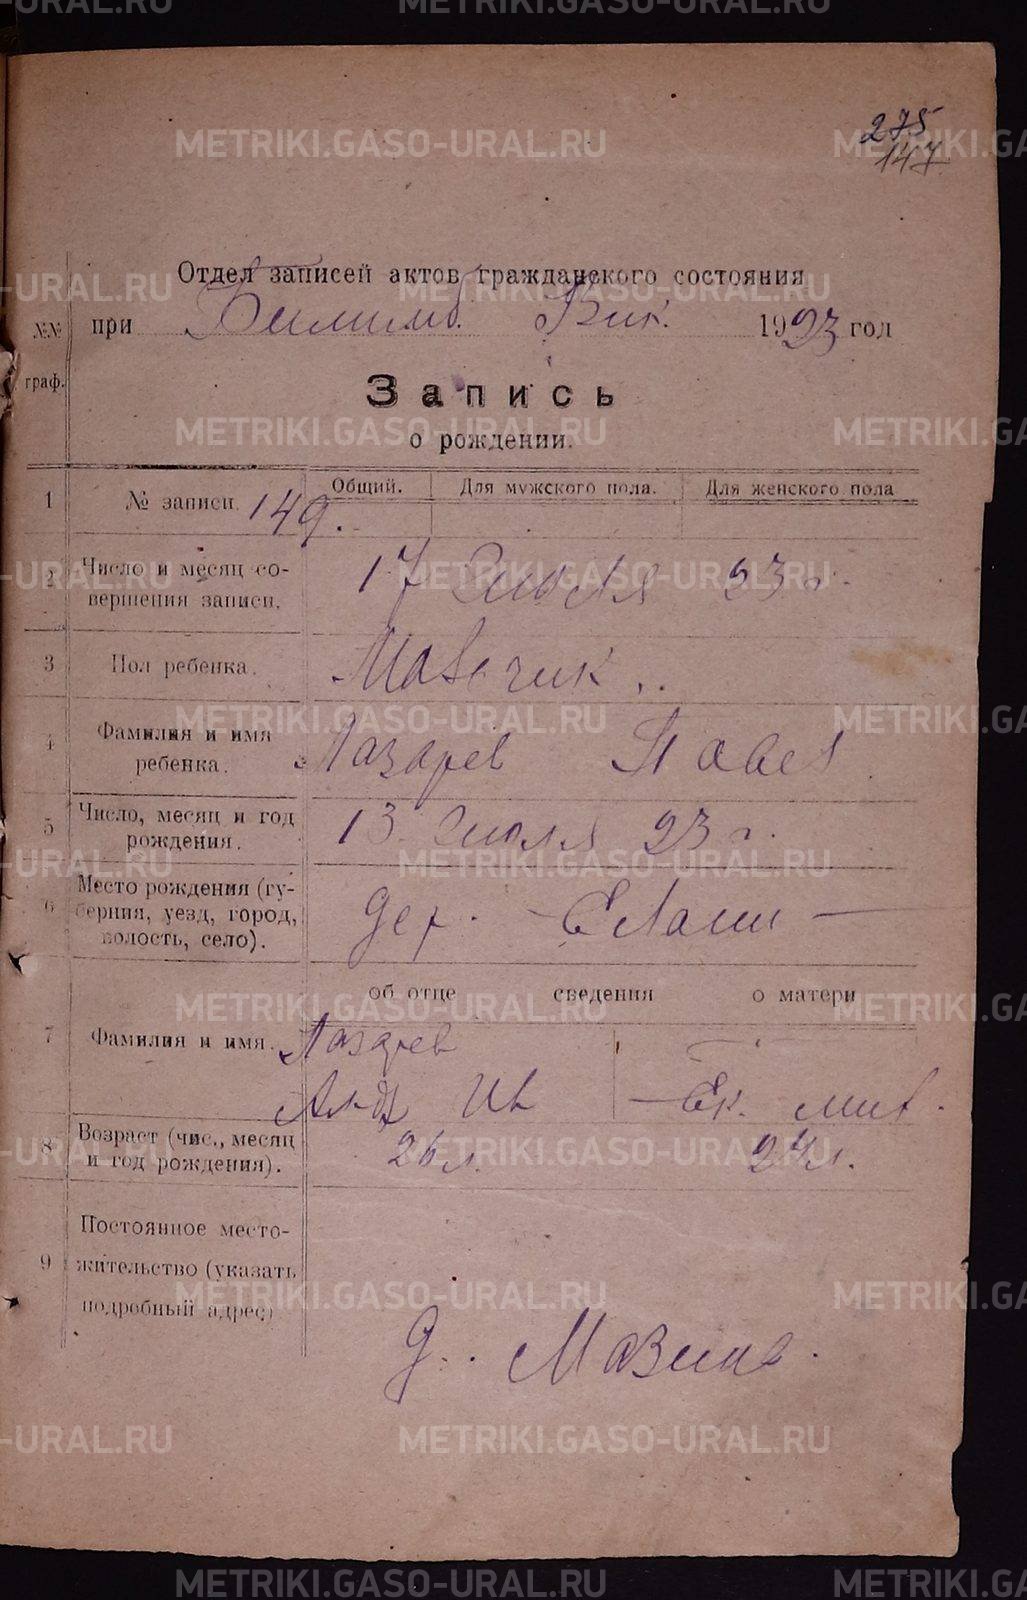 275
147
Отдел записей актов гражданского состояния
при Билимб. Вик. 1923 год
№№ граф.
Запись
о рождении.
Общий. Для мужского пола. Для женского пола
1 № записи. 149.
2 Число и месяц со-
вершения записи. 17 Июля 23 г.
3 Пол ребенка. Мальчик.
4 Фамилия и имя
ребенка. Лазарев Павел
5 Число, месяц и год
рождения. 13 Июля 23 г.
6 Место рождения (гу-
берния, уезд, город,
волость, село). дер.
об отце сведения о матери
7 Фамилия и имя. Лазарев
Ив Ек. мит.
8 Возраст (чис., месяц
и год рождения). 26 л. 24 л.
9 Постоянное место-
жительство (указать
подробный адрес)
д.
METRIKI.GASO-URAL.RU